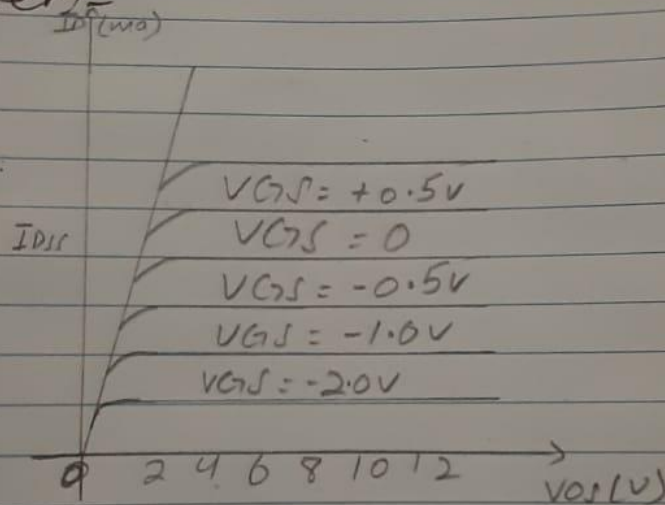 ID (mA)
VGS = +0.5V
IDSS
VGS = 0
VGS = -0.5V
VGS = -1.0V
VGS = -2.0V
0 2 4 6 8 10 12
VDS (V)